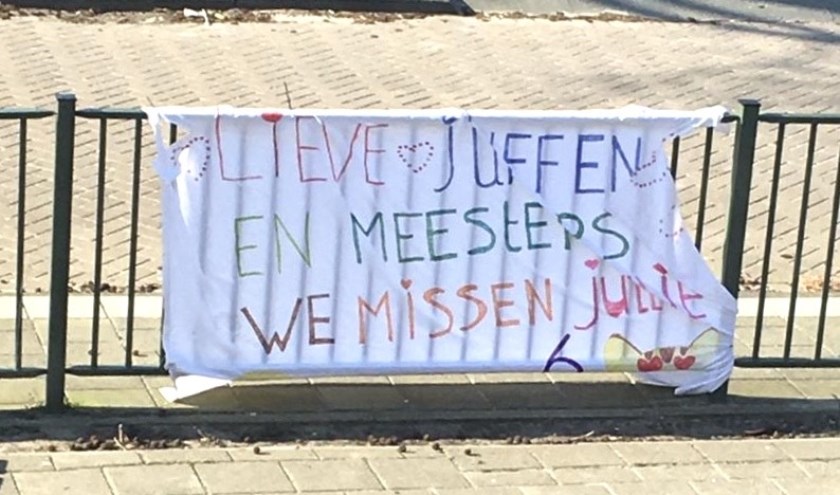 LIEVE JUFFEN
EN MEESTERS
WE MiSSEN jullie
6